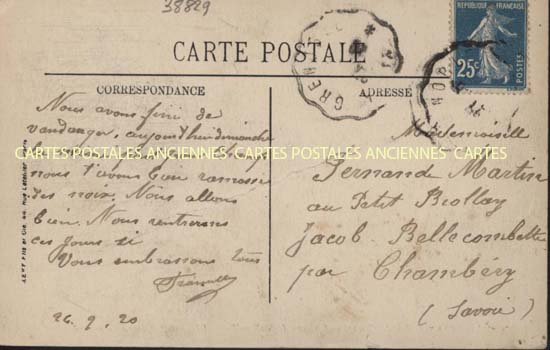 38829
CARTE POSTALE
CORRESPONDANCE
ADRESSE
REPUBLIQUE FRANÇAISE
25c
GREN
Nous avons fini de
vendanger, aujourd'hui dimanche
nous avons bien ramassé
des noix. Nous allons
bien. Nous rentrerons
ces jours ci
Vous embrassons tous
26.9.20
Mademoiselle
Fernande Martin
au Petit Biollay
Jacob Bellecombette
par Chambéry
(Savoie)
CARTES POSTALES ANCIENNES CARTES POSTALES ANCIENNES CARTES